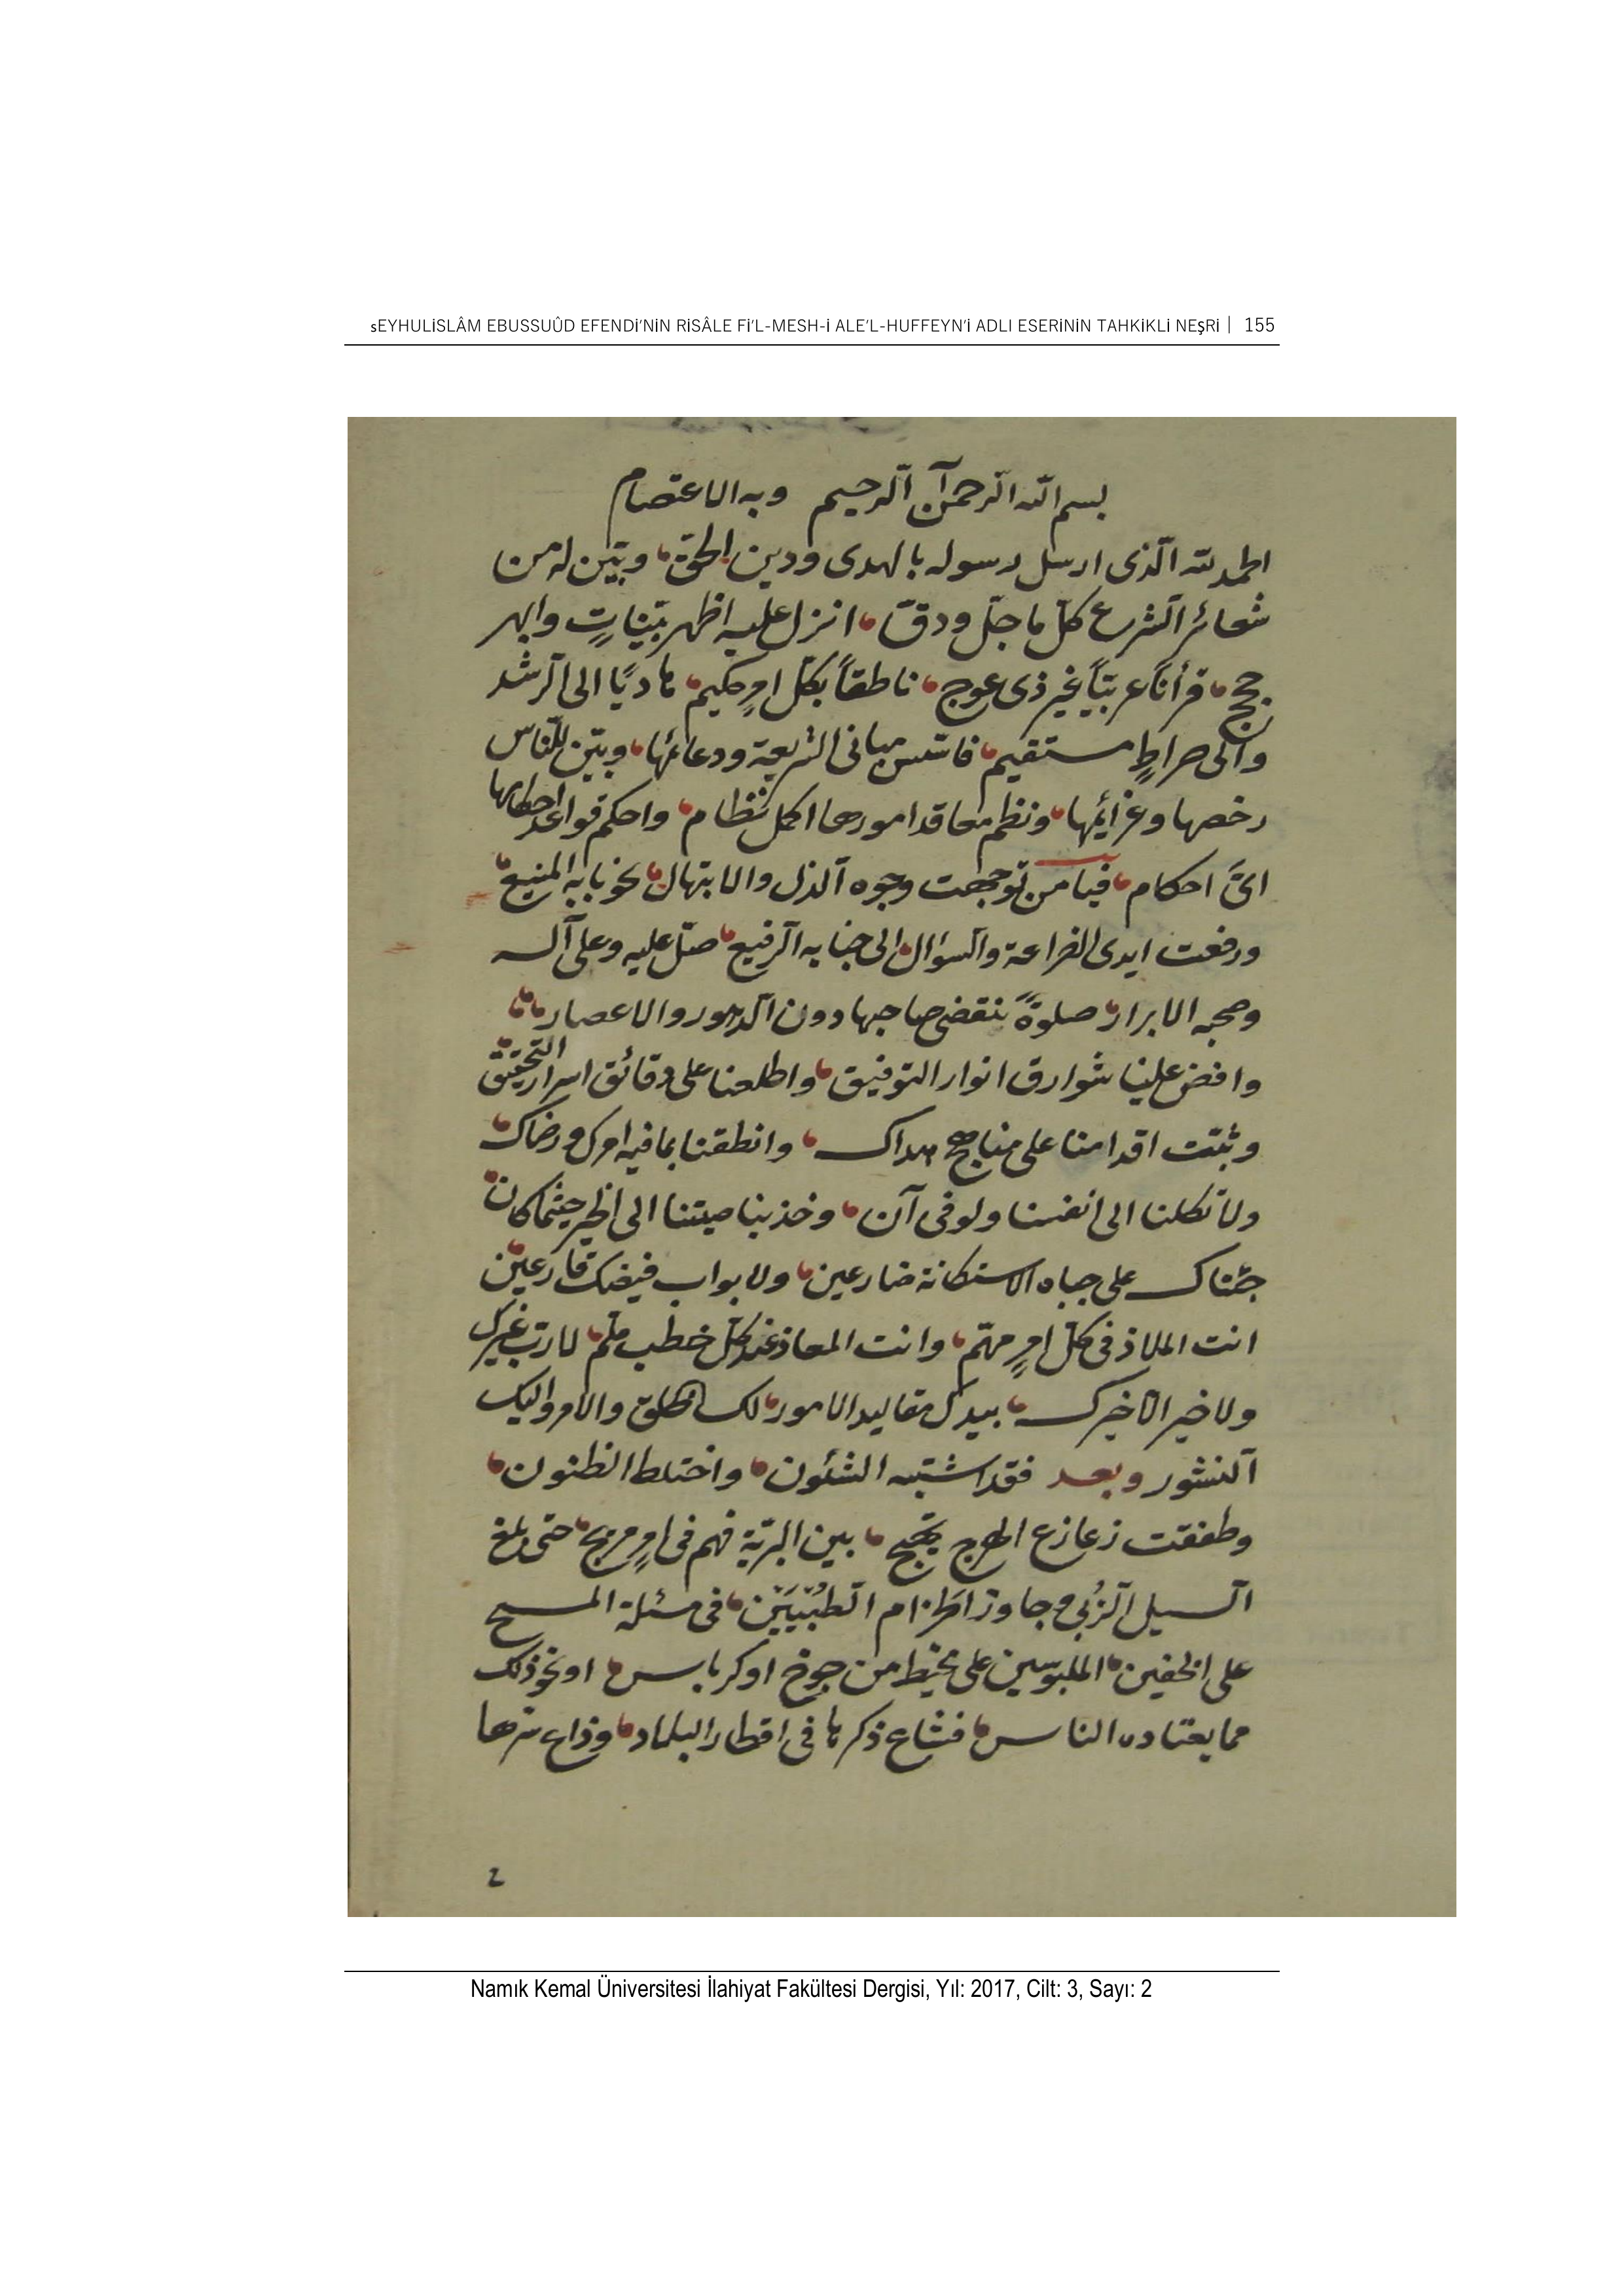 sEYHULİSLÂM EBUSSUÛD EFENDİ'NİN RİSÂLE Fİ'L-MESH-İ ALE'L-HUFFEYN'İ ADLI ESERİNİN TAHKİKLİ NEşRİ | 155
بسم الله الرحمن الرحيم وبه الاعتصام
الحمد لله الذى ارسل رسوله بالهدى ودين الحق وبين له من
شعائر الشرع كل ما جل ودق انزل عليه اظهر بينات وابهر
حجج قرأنا عربيا غير ذى عوج ناطقا بكل امر حكيم هاديا الى الرشد
والى صراط مستقيم فاسس مبانى الشريعة ودعائمها وبين للناس
رخصها وعزائمها ونظم معاقد امورها اكمل نظام واحكم قواعد احكامها
اى احكام فيا من توجهت وجوه الذل والابتهال نحو بابه المنيع
ورفعت ايدى الضراعة والسؤال الى جنابه الرفيع صل عليه وعلى آله
وصحبه الابرار صلوة ننقضى صاحبها دون الدهور والاعصار
وافض علينا شوارق انوار التوفيق واطلعنا على دقائق اسرار التحقيق
وثبت اقدامنا على مناهج هداك وانطقنا بما فيه امرك ورضاك
ولا تكلنا الى انفسنا ولو فى آن وخذ بناصيتنا الى الخير حيثما كان
جئناك على جباه الاستكانة ضارعين ولابواب فيضك قارعين
انت الملاذ فى كل امر مهم وانت المعاذ عند كل خطب ملم لا رب غيرك
ولا خير الا خيرك بيدك مقاليد الامور لك الخلق والامر واليك
النشور وبعد فقد اشتبه الشئون واختلط الظنون
وطفقت زعازع الهرج تهيج بين البرية فهم فى امر مريج حتى بلغ
السيل الزبى وجاوز الحزام الطبيين فى مسئلة المسح
على الخفين الملبوسين على مخيط من جوخ او كرباس او نحو ذلك
مما يعتاده الناس فشاع ذكرها فى اقطار البلاد وذاع سرها
٢
Namık Kemal Üniversitesi İlahiyat Fakültesi Dergisi, Yıl: 2017, Cilt: 3, Sayı: 2